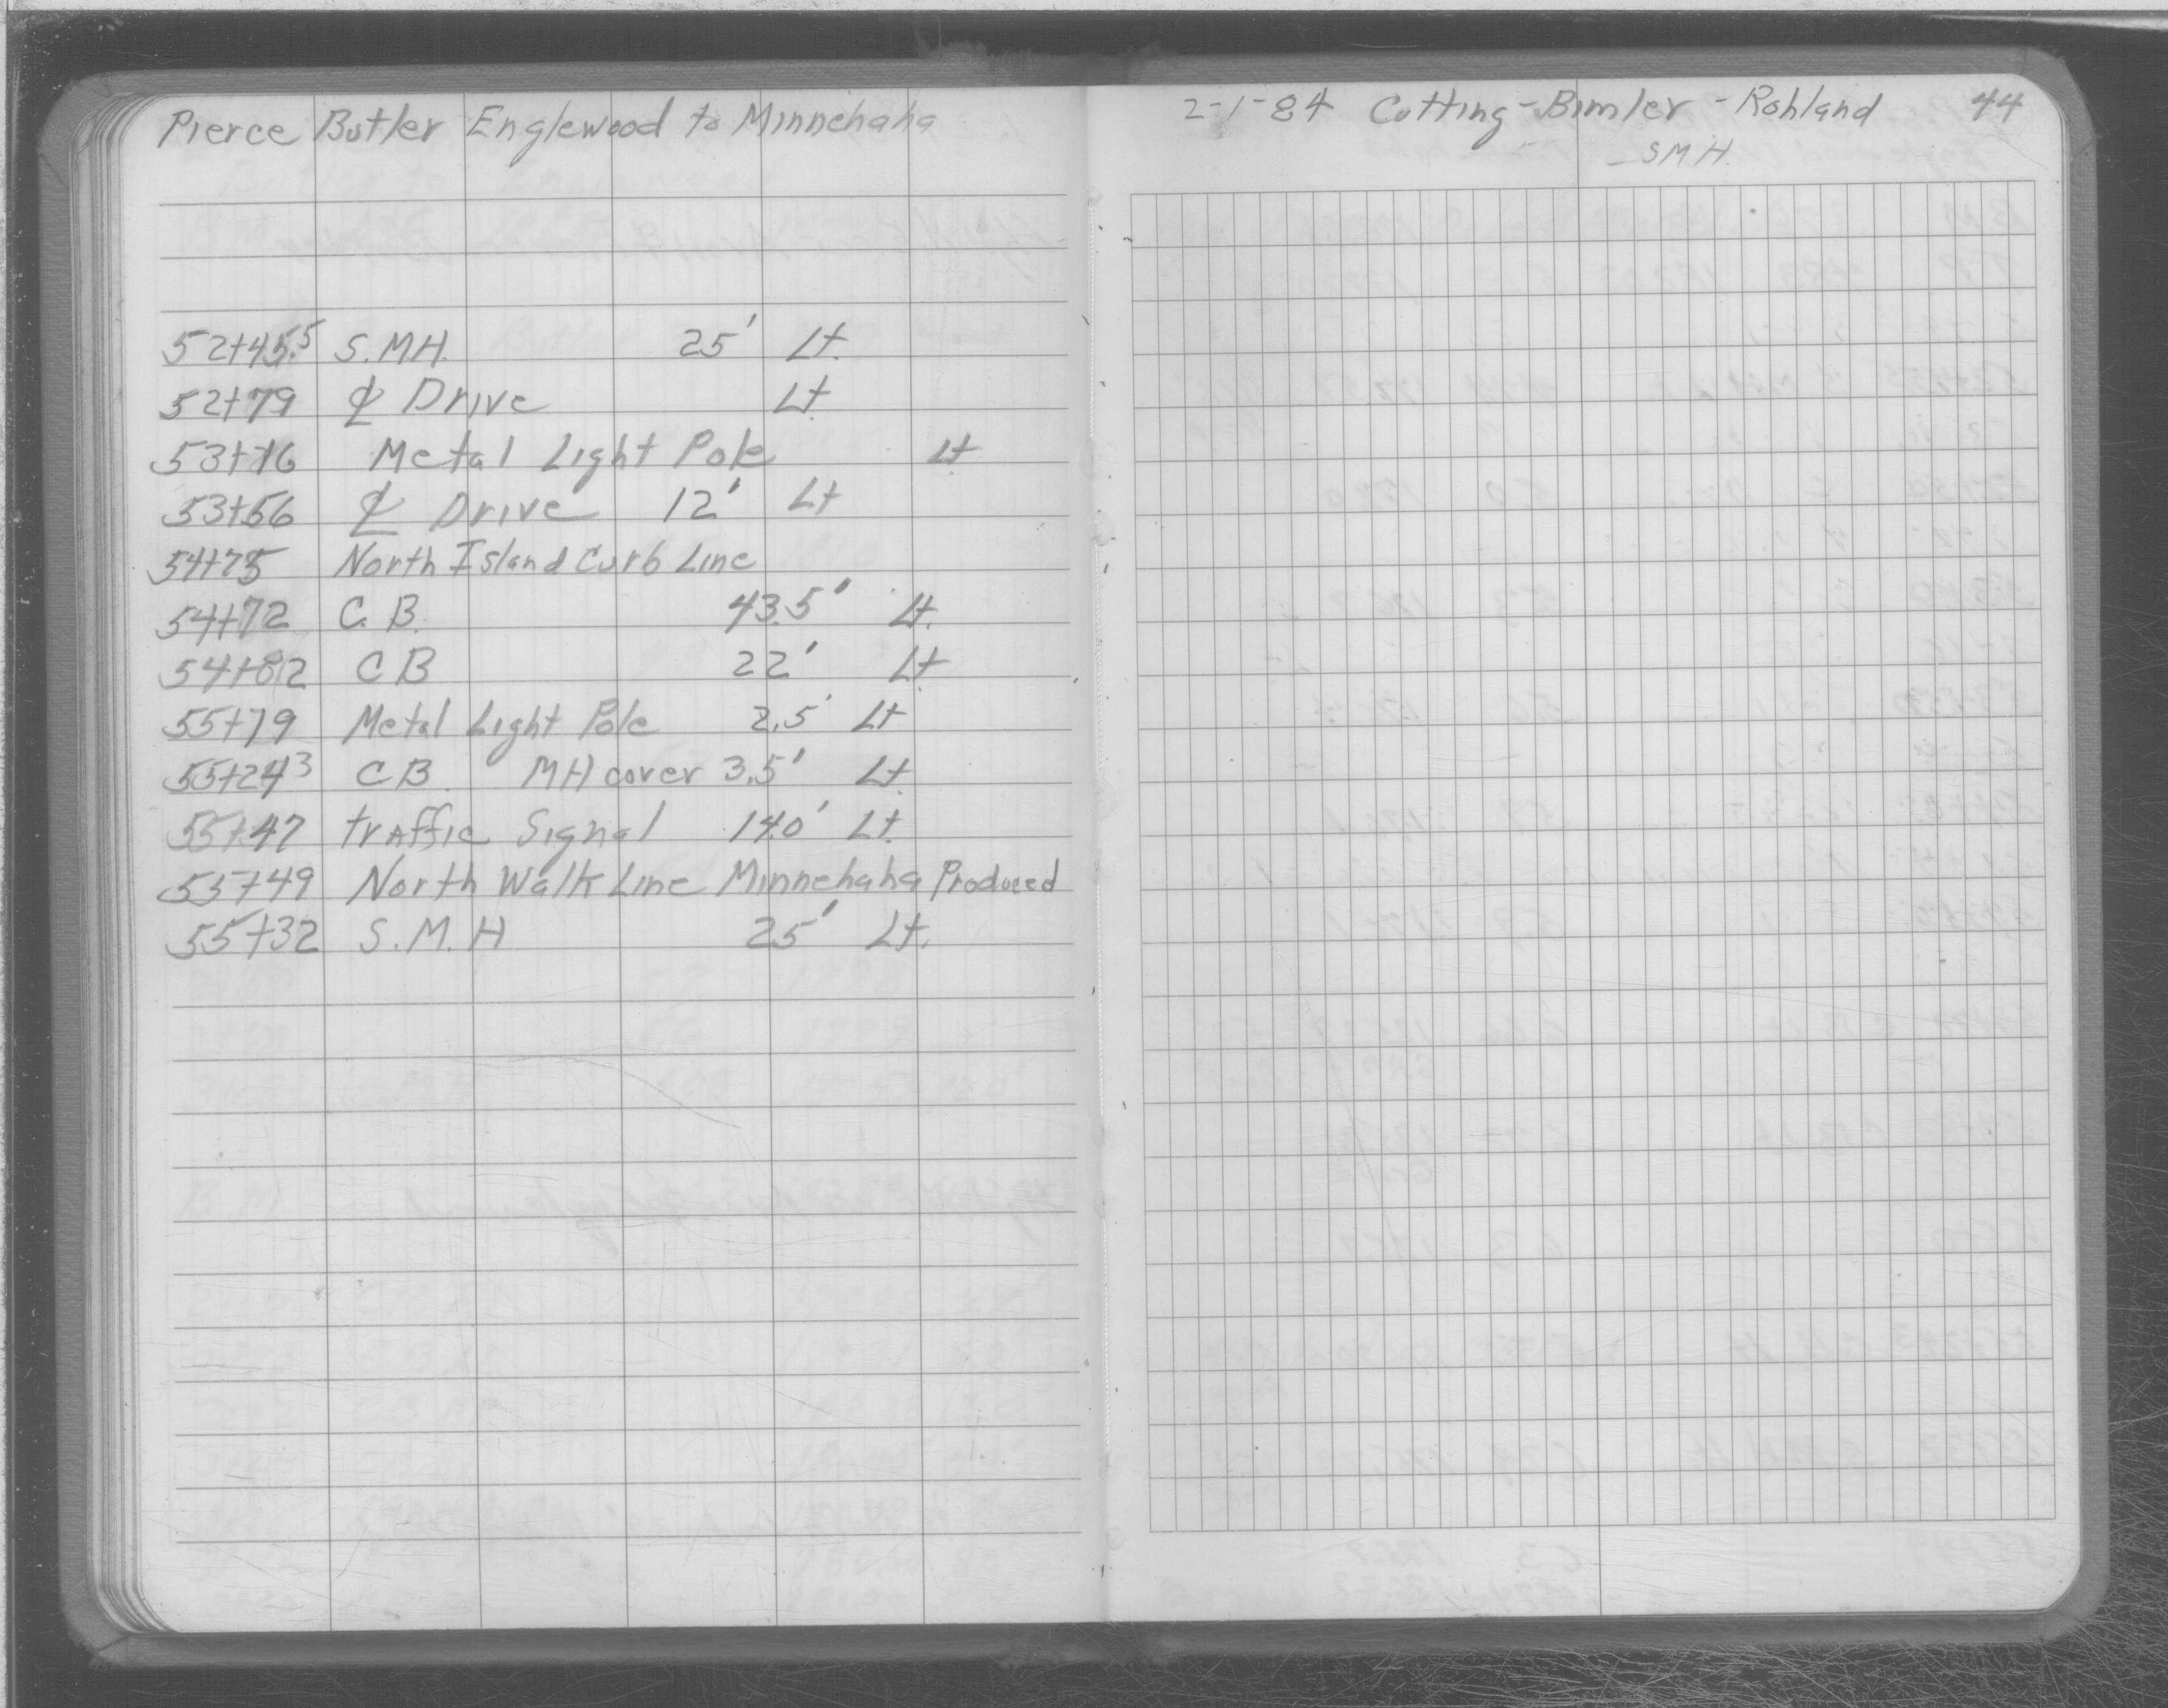 Pierce Butler Englewood to Minnehaha
52+45.5 S.M.H. 25' Lt.
52+79 ℄ Drive Lt.
53+16 Metal Light Pole Lt.
53+56 ℄ Drive 12' Lt
54+75 North Island Curb Line
54+72 C.B. 43.5' Lt.
54+82 CB 22' Lt.
55+19 Metal Light Pole 2.5' Lt
55+24³ CB. MH cover 3.5' Lt.
55+47 traffic Signal 14.0' Lt.
55+49 North Walk Line Minnehaha Produced
55+32 S.M.H 25' Lt.
2-1-84 Cutting-Bimler-Rohland 44
SMH.